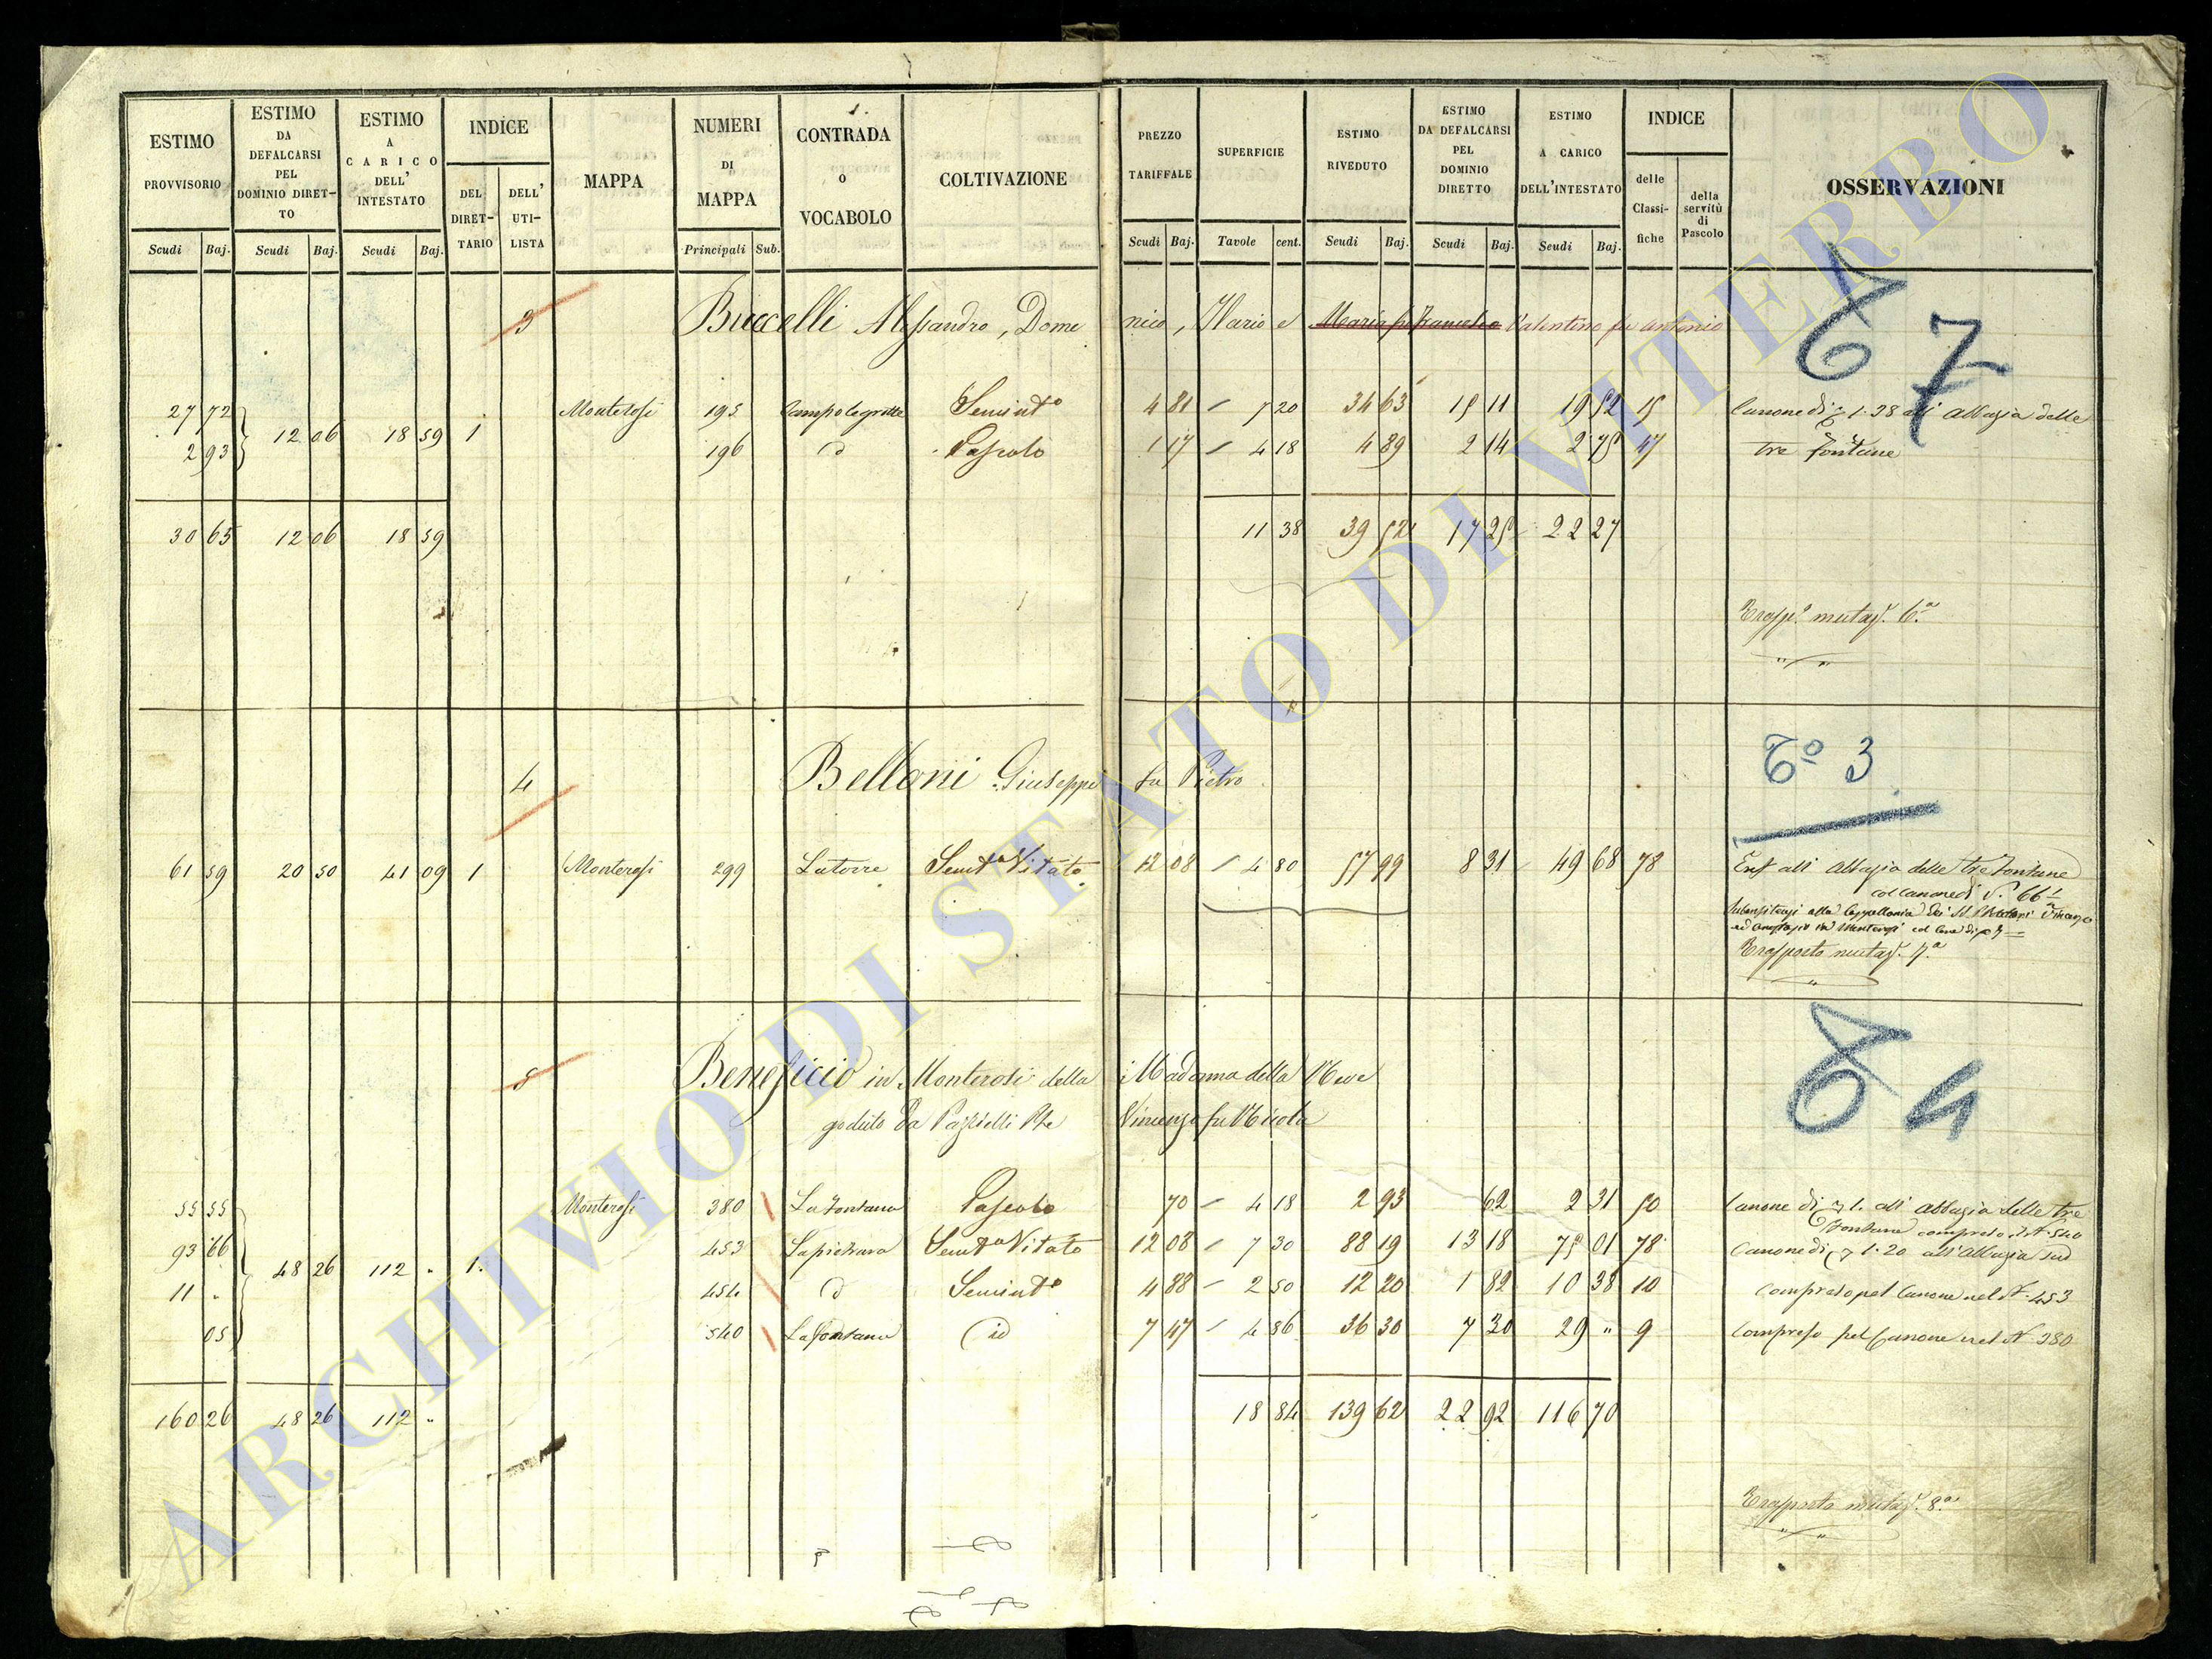 ESTIMO PROVVISORIO
ESTIMO DA DEFALCARSI PEL DOMINIO DIRETTO
ESTIMO A CARICO DELL' INTESTATO
INDICE
DEL DIRETTARIO
DELL' UTILISTA
MAPPA
NUMERI DI MAPPA
CONTRADA O VOCABOLO
COLTIVAZIONE
PREZZO TARIFFALE
SUPERFICIE
ESTIMO RIVEDUTO
ESTIMO DA DEFALCARSI PEL DOMINIO DIRETTO
ESTIMO A CARICO DELL'INTESTATO
INDICE
delle Classifiche
della servitù di Pascolo
OSSERVAZIONI
Scudi Baj. Scudi Baj. Scudi Baj. Principali Sub. Scudi Baj. Tavole cent. Scudi Baj. Scudi Baj. Scudi Baj.
3 Buccelli Alessandro, Domenico, Ilario e Valentino fu Antonio
67
27 72 12 06 18 59 1 Monterosi 195 Campolegrotte Seminto 4 81 7 20 34 63 15 11 19 52 15 Canone di 1.38 all' Abbazia delle
2 93 196 d Pascolo 1 17 4 18 4 89 2 14 2 75 47 tre fontane
30 65 12 06 18 59 11 38 39 52 17 25 22 27
Traspo mutaz. 6a
4 Belloni Giuseppe fu Pietro
To 3
61 59 20 50 41 09 1 Monterosi 299 Latorre Semto Vitato 12 08 4 80 57 99 8 31 49 68 78 Enf all' Abbazia delle tre fontane
col canone di 66
Trasporto mutaz. 7a
5 Beneficio in Monterosi della Madonna della Neve
goduto da Vincenzo fu Nicola
64
55 55 48 26 112 „ 1 Monterosi 380 La Fontana Pascolo 70 4 18 2 93 62 2 31 50 Canone di 1. all' Abbazia delle tre
Fontane compreso il N. 540
93 66 453 Lapietrara Semto Vitato 12 08 7 30 88 19 13 18 75 01 78 Canone di 1.20 all' Abbazia sud
11 „ 454 d Seminto 4 88 2 50 12 20 1 82 10 38 10 Compreso pel Canone nel N. 453
05 540 La fontana id 7 47 4 86 36 30 7 30 29 „ 9 Compreso pel Canone nel N. 380
160 26 48 26 112 „ 18 84 139 62 22 92 116 70
Trasporto mutaz. 8a
ARCHIVIO DI STATO DI VITERBO